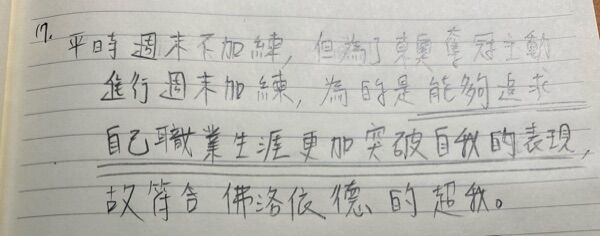 17. 平時週末不加練, 但為了東奧奪冠主動
進行週末加練, 為的是能夠追求
自己職業生涯更加突破自我的表現,
故符合佛洛依德的超我。